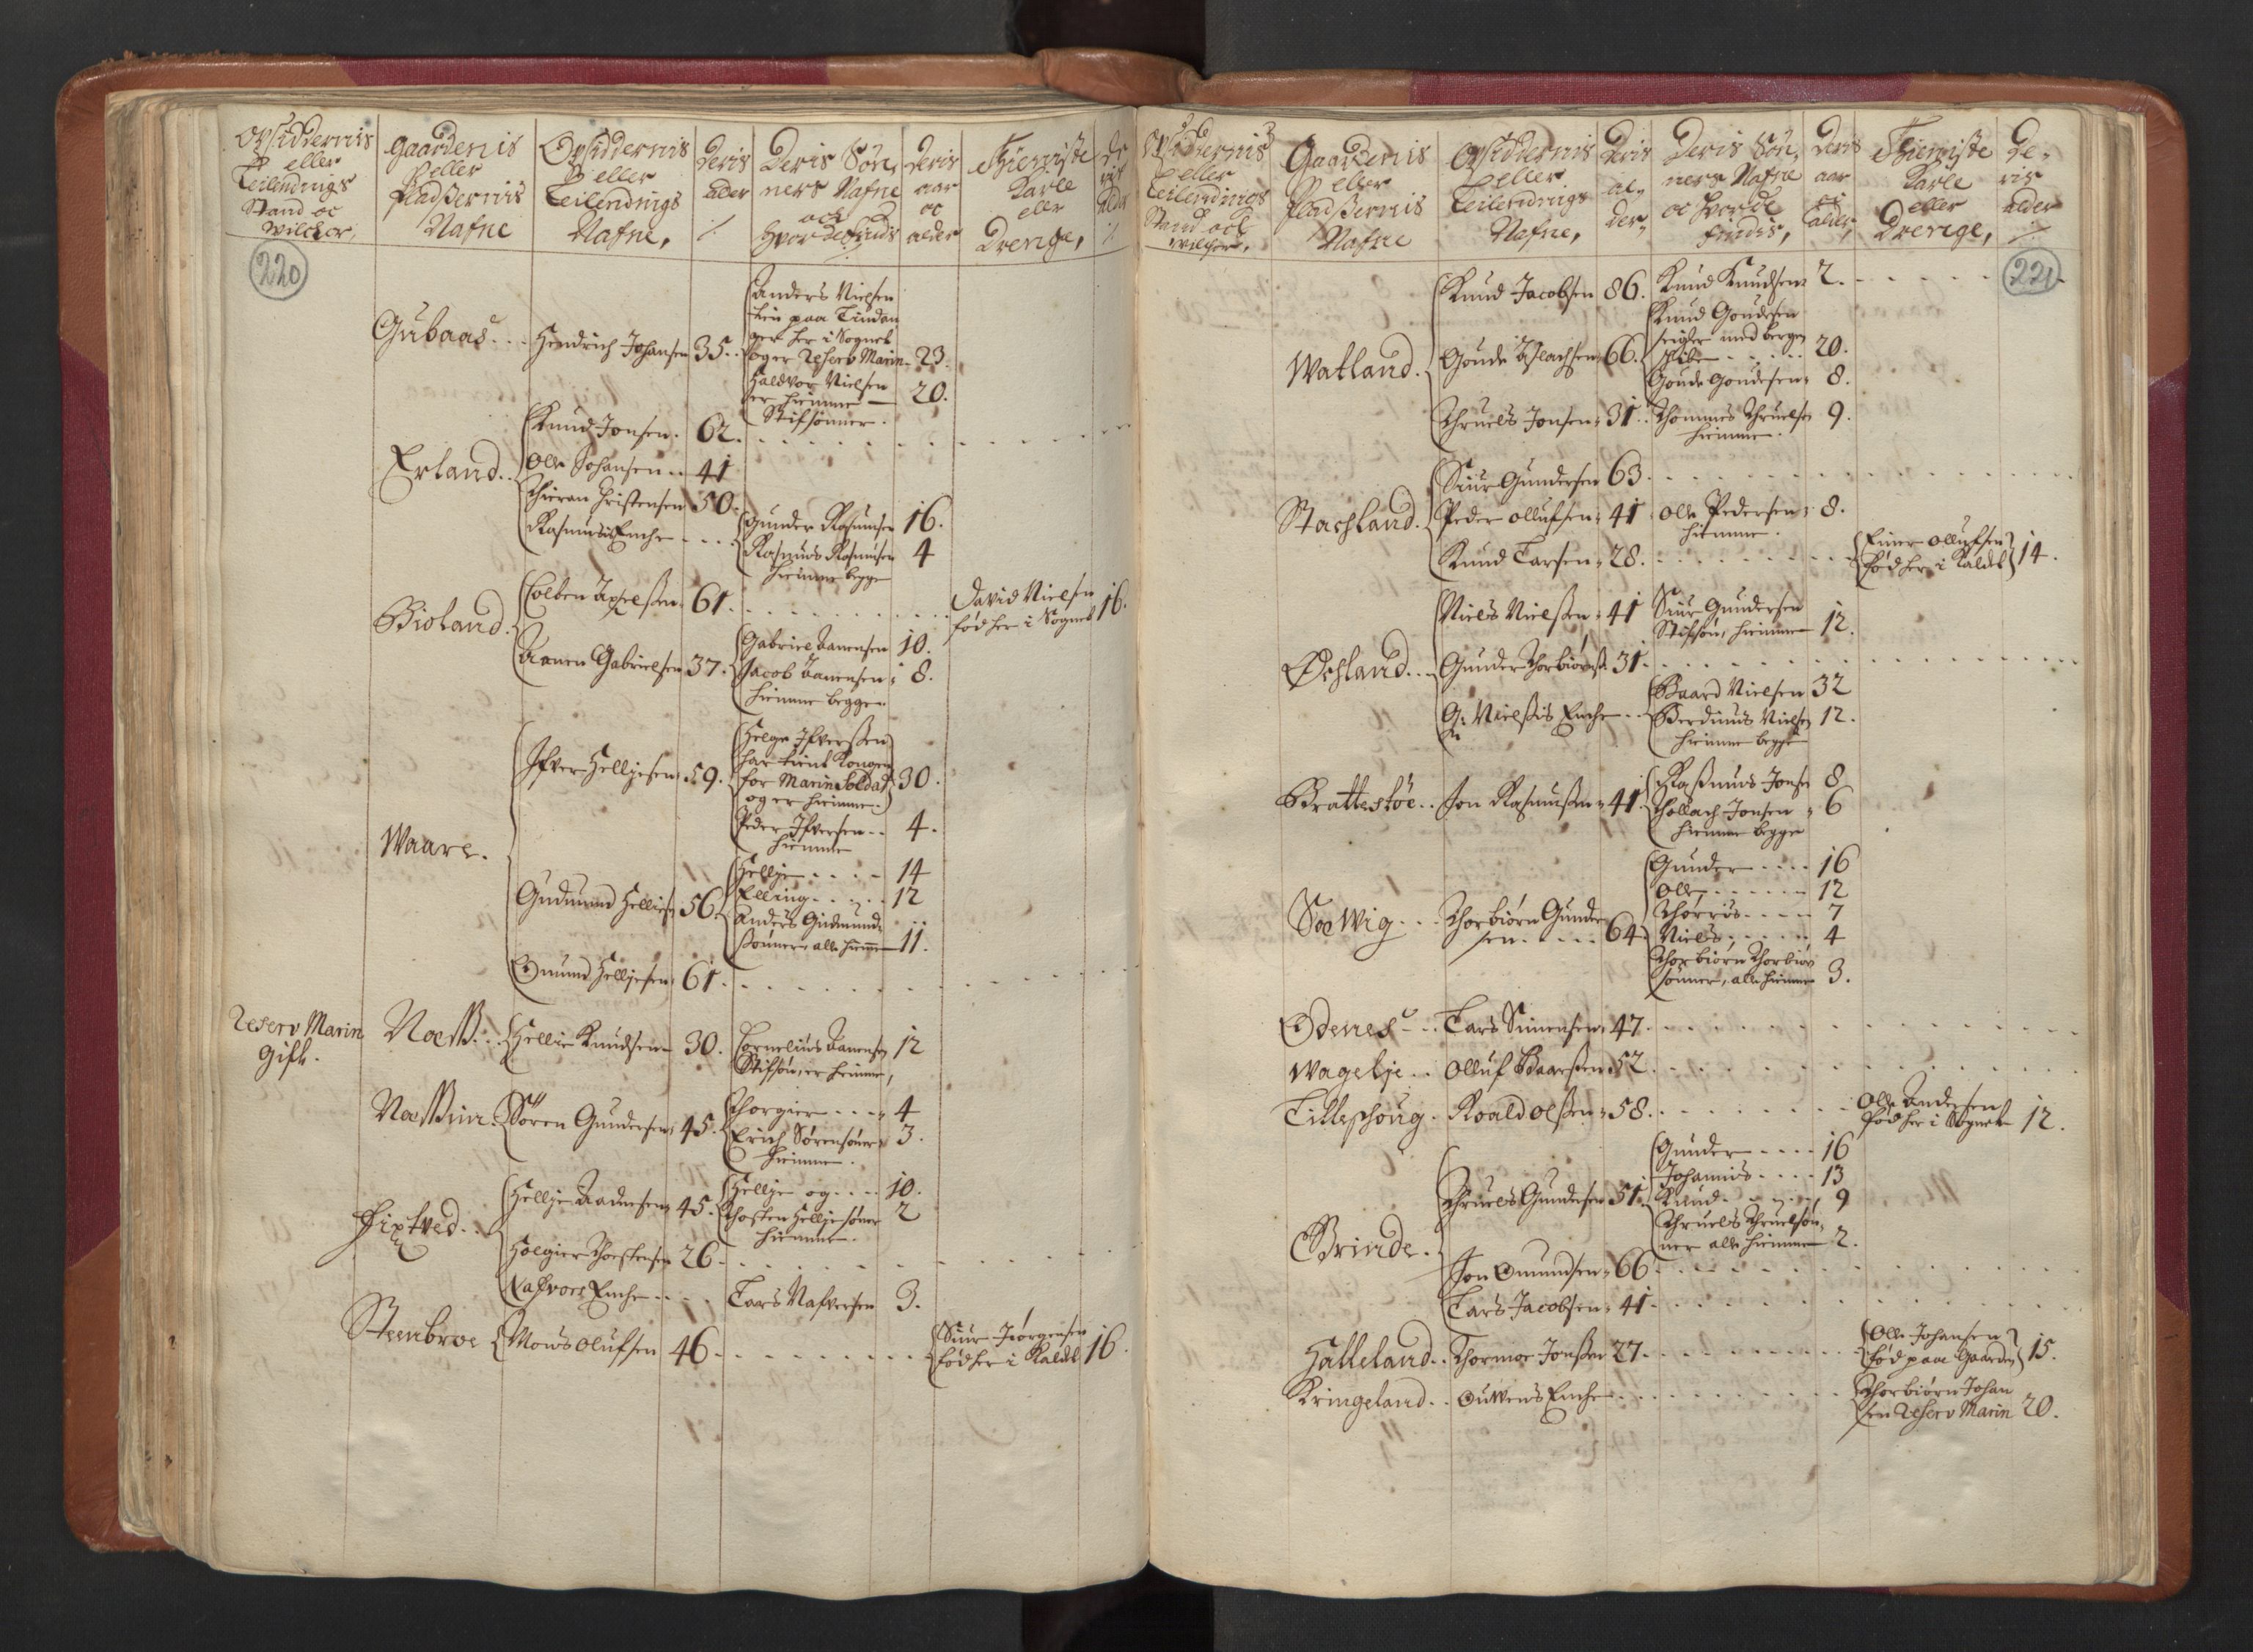 Opsiddernis
eller
Leilendings
Stand oc
Wilchor,
Gaardenis
eller
Pladßernis
Nafne
Opsiddernis
eller
Leilendings
Nafne,
Deris
alder
Deris Søn
ners Nafne
och
hvor de findis
Deris
aar
oc
alder
Thieniste
Karle
eller
Drenge,
De
ris
alder
220
Gubaas Hendrich Johansen 35
Anders Nielsen
paa
her i Sognet
oger Reserv Marin 23
Haldvor Nielsen 20.
er hiemme
Stifsønner.
Erland
Knud Jonsen. 62.
Olle Johansen 41
Christensen 50
Rasmus Enche
Gunder Rasmusen 16.
Rasmus Rasmusen 4
hiemme begge
Bioland
Colben Axelßen 61. David Nielsen 16.
fød her i Sognet
Aanen Gabrielsen 37. Gabriel Aanensen 10.
Jacob Aanensen 8.
hiemme begge
Waare.
Ifver Helljesen 59.
Helge Ifverßen
har tient Kongen
for Marin Soldat 30.
og er hiemme.
Peder Ifversen 4.
hiemme
Gudmund Helliesen 56
Hellje 14
Elling 12
Anders Gudmunds
sønner alle hiemme 11.
Omund Helljesen 61.
Reserv Marin
Gift.
Næss Hellie Knudsen 30. Cornelius Aanensen 12
Stifsøn, er hiemme,
Søren Gundersen 45.
Thorgier 4
Erich Sørensøner 3.
hiemme.
Fixtved
Hellje Aadnesen 45.
Hellje og 10.
Thosten Helljesøner 2
hiemme.
Holgier Thorstensen 26
Nafvers Enche Lars Nafversen 3.
Steenbroe Mons Olufsen 46 Siur Jørgensen
fød her i Kaldet 16.
Opsiddernis
eller
Leilendings
Stand och
Wilchor,
Gaardenis
eller
Pladßernis
Nafne
Opsiddernis
eller
Leilendings
Nafne,
Deris
al
der
Deris Søn
ners Nafne
oc hvor de
findis,
Deris
aar
oc
alder
Thieniste
Karle
eller
Drenge,
De
ris
alder
221
Watland
Knud Jacobsen 86. Knud Knudsen 2.
Goude Aslachsen 66.
Knud Goudesen
seigler med bergen
skibe 20.
Goude Goudesen 8.
Thruels Jonsen 31. Thommes Thruelsen 9.
hiemme.
Stachland
Siur Gundersen 63
Peder Ollufsen 41 Olle Pedersen 8.
hiemme.
Knud Larsen 28. Einer Ollufsen
fød her i Kaldet 14.
Øchland
Niels Nielßen 41 Siur Gundersen
Stifsøn, hiemme 12.
Gunder Thorbiørns. 31
Nielßis Enche
Baard Nielsen 32
Berdinus Nielsen 12.
hiemme begge
Brattestøe Jon Rasmußen 41
Raßmus Jonsen 8
Thollach Jonsen 6
hiemme begge
Soe Wig Thorbiørn Gunder
sen 64
Gunder 16
Olle 12
Thørris 7
Niels 4
Thorbiørn Thorbiør
sønner, alle hiemme 3.
Odenes Lars Simensen 47
Wagelje Olluf Baarsen 52
Tillephoug Roald Olßen 58. Olle Andersen
fød her i Sognet 12.
Grinde.
Thruels Gundersen 51.
Gunder 16
Johannis 13
Knud 9
Thruels Thruelsøn
ner alle hiemme 2.
Jon Omundsen 66
Lars Jacobsen 41
Halleland Thormoe Jonßen 27. Olle Johansen
fød paa Gaarden 15.
Kringeland Ouwens Enche Thorbiørn Johan
sen Reserv Marin 20.